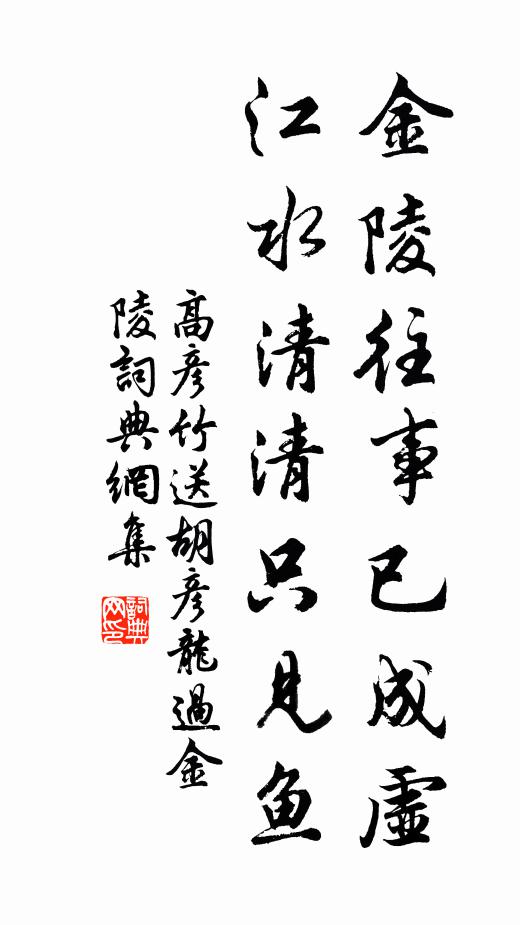 金陵往事已成虛
江水清清只見魚
高彥竹送胡彥龍過金
陵詞典網集
詞典網印